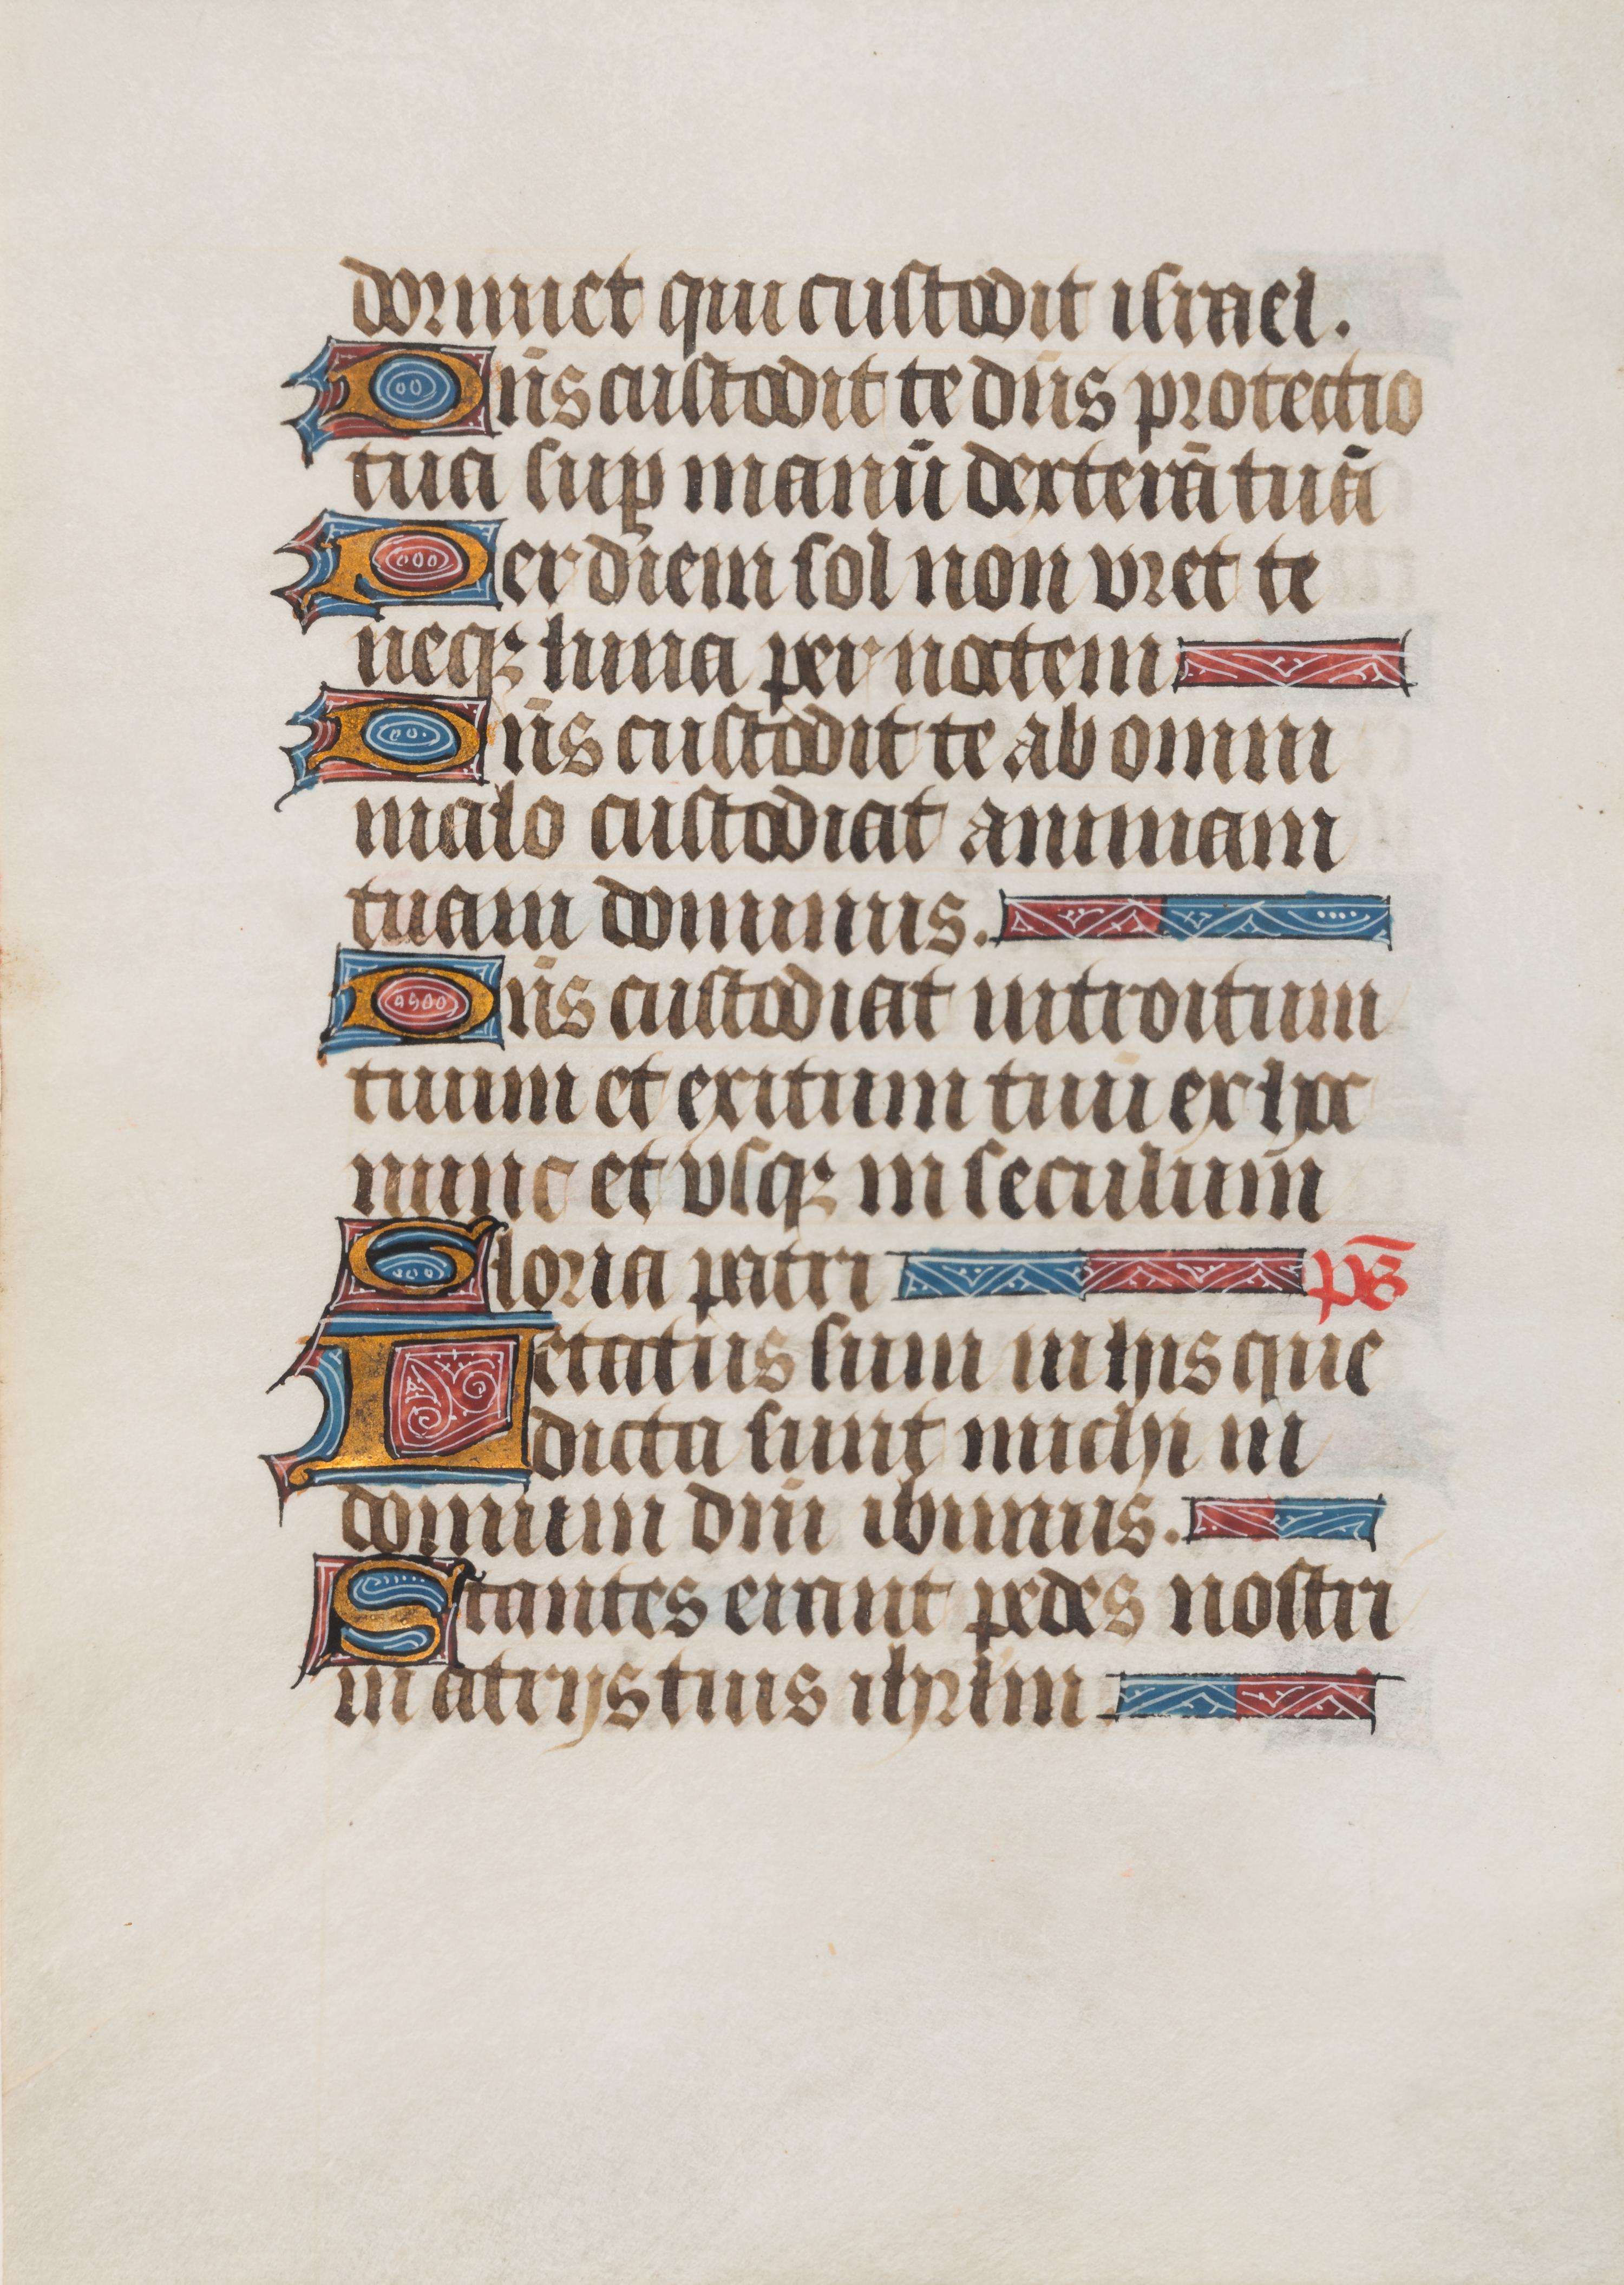 dormiet qui custodit israel.
Dn̄s custodit te dn̄s protectio
tua sup̱ manū dexterā tuā
Per diem sol non vret te
neqꝫ luna per noctem
Dn̄s custodit te ab omni
malo custodiat animam
tuam dominus.
Dn̄s custodiat introitum
tuum et exitum tuū ex hoc
nunc et vsqꝫ in seculum
Gloria patri ps̄
Letatus sum in his que
dicta sunt michi in
domum dn̄i ibimus.
Stantes erant pedes nostri
in atrijs tuis ihrlm